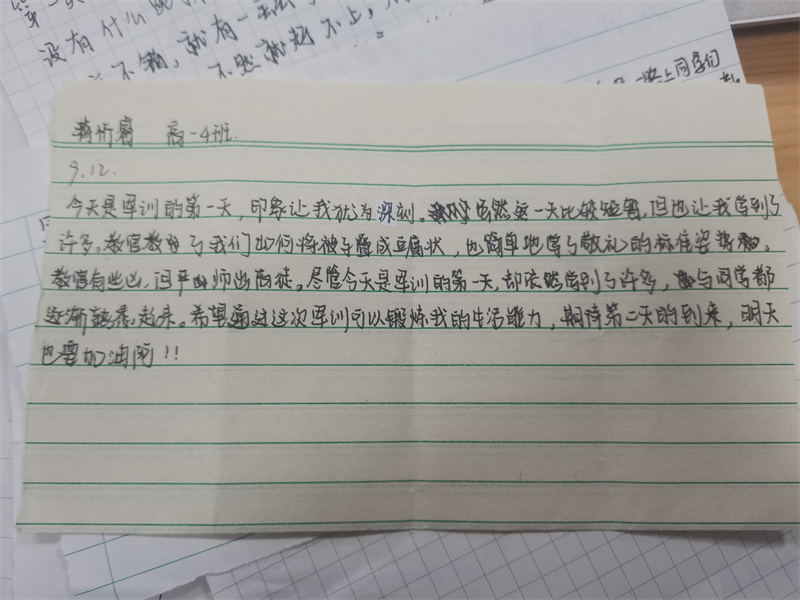 没有什么
不错,就有一
不然就赶不上,
晚上同学们
蒋忻睿 高一4班.
9.12.
今天是军训的第一天,印象让我尤为深刻。虽然这一天比较短暂,但也让我学到了
许多,教官教导了我们如何将被子叠成豆腐状,也简单地学了敬礼的标准姿势、
教官有些凶,但严师出高徒。尽管今天是军训的第一天,却依然学到了许多,与同学都
逐渐熟悉起来。希望通过这次军训可以锻炼我的生活能力,期待第二天的到来,明天
也要加油闭!!